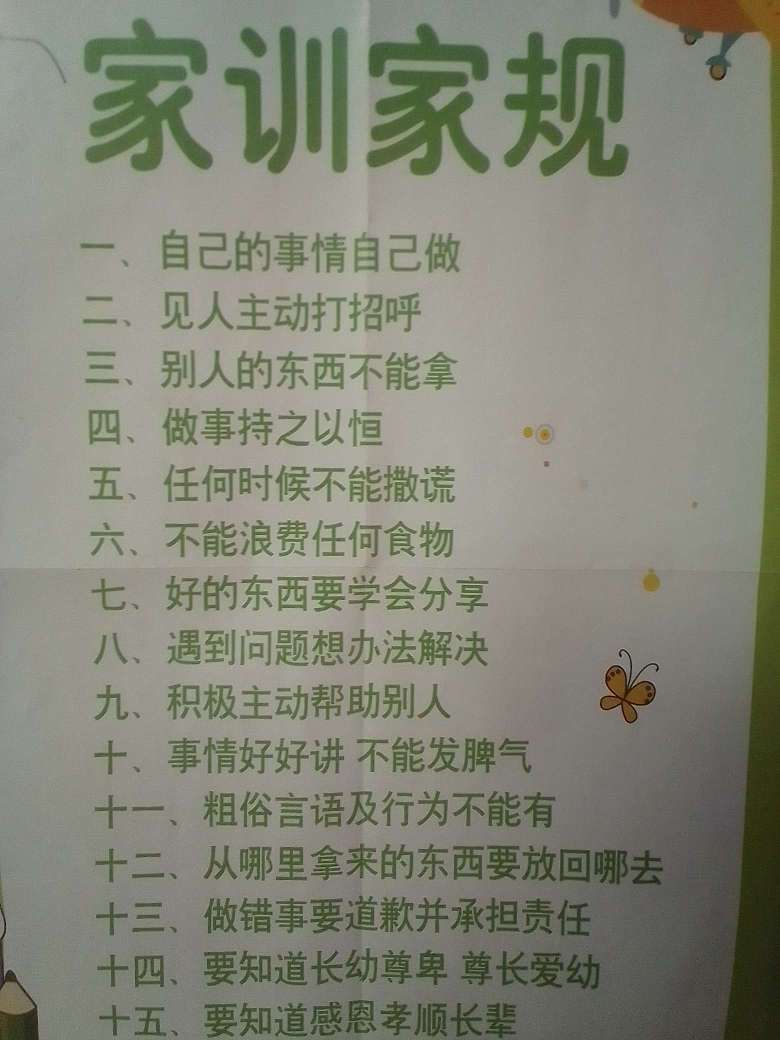 家训家规
一、自己的事情自己做
二、见人主动打招呼
三、别人的东西不能拿
四、做事持之以恒
五、任何时候不能撒谎
六、不能浪费任何食物
七、好的东西要学会分享
八、遇到问题想办法解决
九、积极主动帮助别人
十、事情好好讲 不能发脾气
十一、粗俗言语及行为不能有
十二、从哪里拿来的东西要放回哪去
十三、做错事要道歉并承担责任
十四、要知道长幼尊卑 尊长爱幼
十五、要知道感恩孝顺长辈